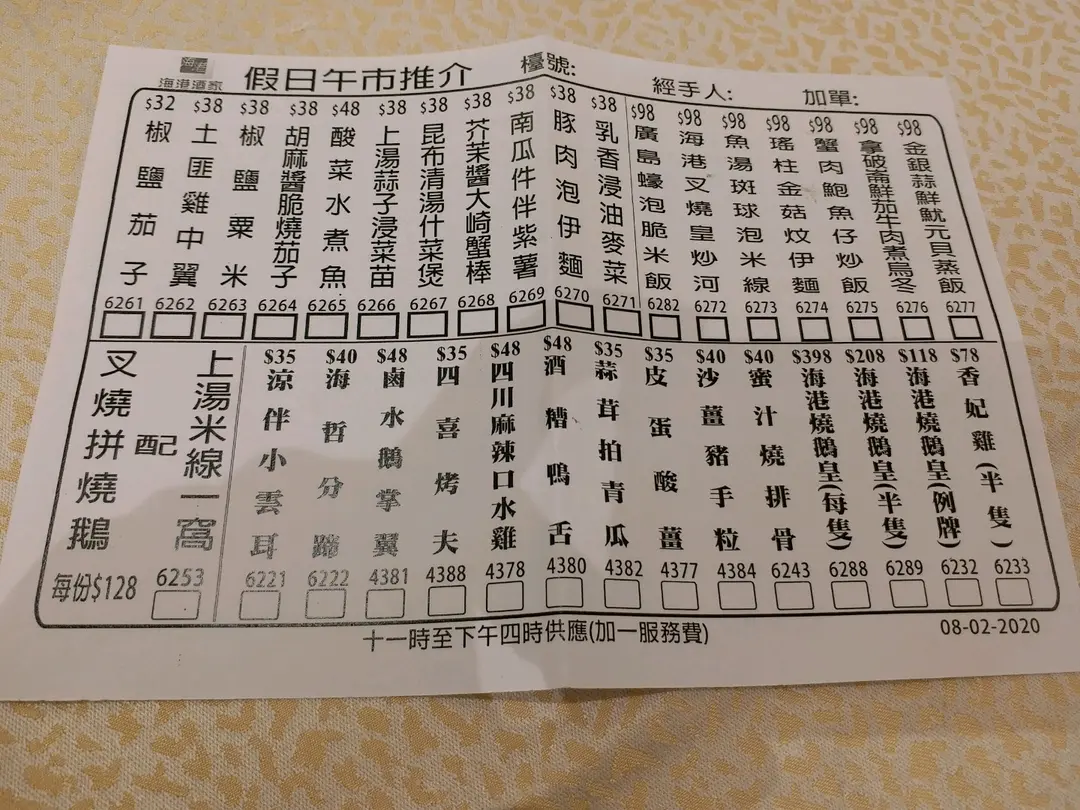 海港酒家
假日午市推介
檯號:
經手人:
加單:
$32 椒鹽茄子 6261
$38 土匪雞中翼 6262
$38 椒鹽粟米 6263
$38 胡麻醬脆燒茄子 6264
$48 酸菜水煮魚 6265
$38 上湯蒜子浸菜苗 6266
$38 昆布清湯什菜煲 6267
$38 芥茉醬大崎蟹棒 6268
$38 南瓜件伴紫薯 6269
$38 豚肉泡伊麵 6270
$38 乳香浸油麥菜 6271
$98 廣島蠔泡脆米飯 6282
$98 海港叉燒皇炒河 6272
$98 魚湯斑球泡米線 6273
$98 瑤柱金菇炆伊麵 6274
$98 蟹肉鮑魚仔炒飯 6275
$98 拿破崙鮮茄牛肉煮烏冬 6276
$98 金銀蒜鮮魷元貝蒸飯 6277
叉燒拼燒鵝
配
上湯米線一窩
每份$128
6253
$35 涼伴小雲耳 6221
$40 海哲分蹄 6222
$48 鹵水鵝掌翼 4381
$35 四喜烤夫 4388
$48 四川麻辣口水雞 4378
$48 酒糟鴨舌 4380
$35 蒜茸拍青瓜 4382
$35 皮蛋酸薑 4377
$40 沙薑豬手粒 4384
$40 蜜汁燒排骨 6243
$398 海港燒鵝皇(每隻) 6288
$208 海港燒鵝皇(半隻) 6289
$118 海港燒鵝皇(例牌) 6232
$78 香妃雞(半隻) 6233
十一時至下午四時供應(加一服務費)
08-02-2020